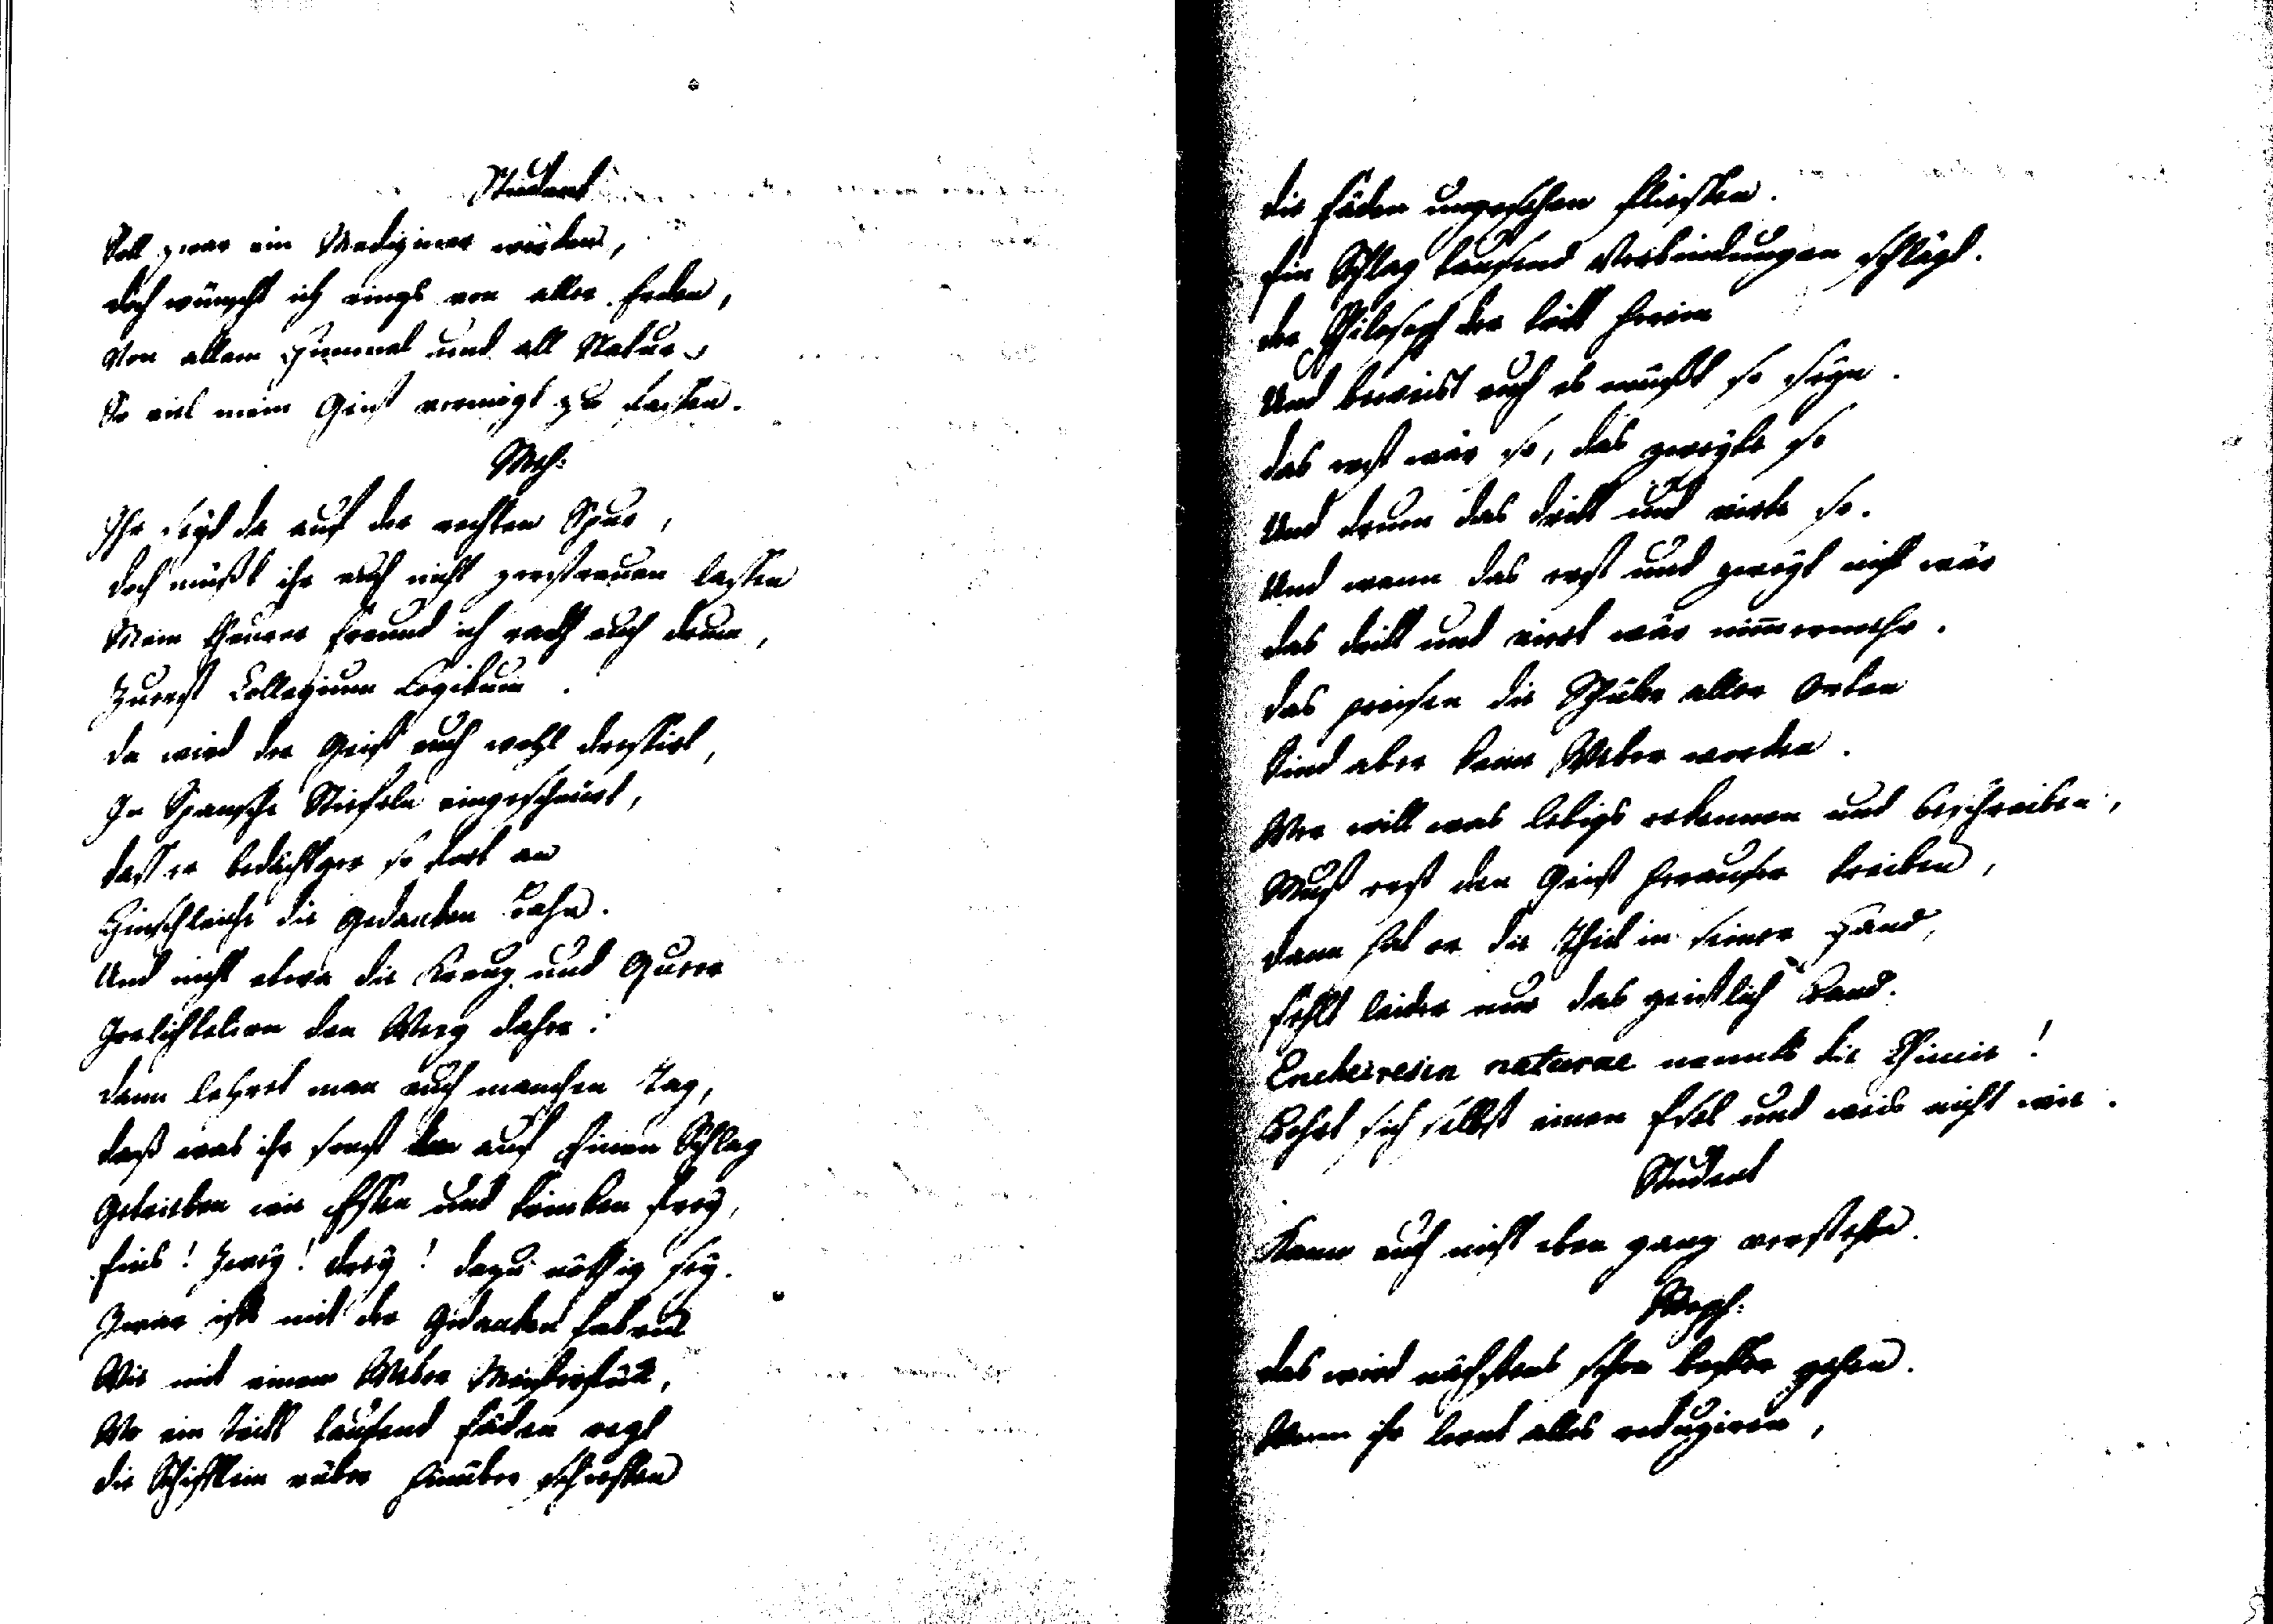 Student
Soll zwar ein Mediziner werden,
doch wünscht ich rings von aller Erden,
Von allem Himmel und all Natur,
So viel mein Geist vermögt zu fassen.
Meph:
Ihr seyd da auf der rechten Spur,
doch müßt ihr euch nicht zerstreuen lassen
Mein theurer Freund ich rath euch drum,
Zuerst Collegium Logikum.
da wird der Geist euch wohl dressirt,
In Spansche Stiefeln eingeschnürt,
dass er bedächtger so fort an
Hinschleiche die Gedanken Bahn.
Und nicht etwa die Kreuz und Queer
Irrlichtelire den Weeg daher.
dann lehret man euch manchen Tag,
daß was ihr sonst auf Einen Schlag
Getrieben wie Essen und trinken frey,
Eins! Zwey! drey! dazu nöthig sey.
Zwar ists mit der Gedanken Fabrick
Wie mit einem Weber Meisterstück,
Wo ein Tritt tausend Fäden regt
die Schifflein rüber hinüber schiessen
die Fäden ungesehen fliessen.
Ein Schlag tausend Verbindungen schlägt.
der Philosoph der tritt herein
Und beweist euch es müsst so seyn.
das erst wär so, das zweyte so
Und drum das dritt und vierte so.
Und wenn das erst und zweyt nicht wär
das dritt und viert wär nimmermehr.
das preisen die Schüler aller Orten
Sind aber keine Weber worden.
Wer will was lebigs erkennen und beschreiben,
Muß erst den Geist herauser treiben,
dann hat er die Theil in seiner Hand,
Fehlt leider nur das geistlich Band.
Encheiresin naturae nennts die Chimie!
Bohrt sich selbst einen Esel und weis nicht wie.
Student
Kann euch nicht eben ganz verstehen.
Meph:
das wird nächstens schon besser gehen.
Wenn ihr lernt alles reduziren,